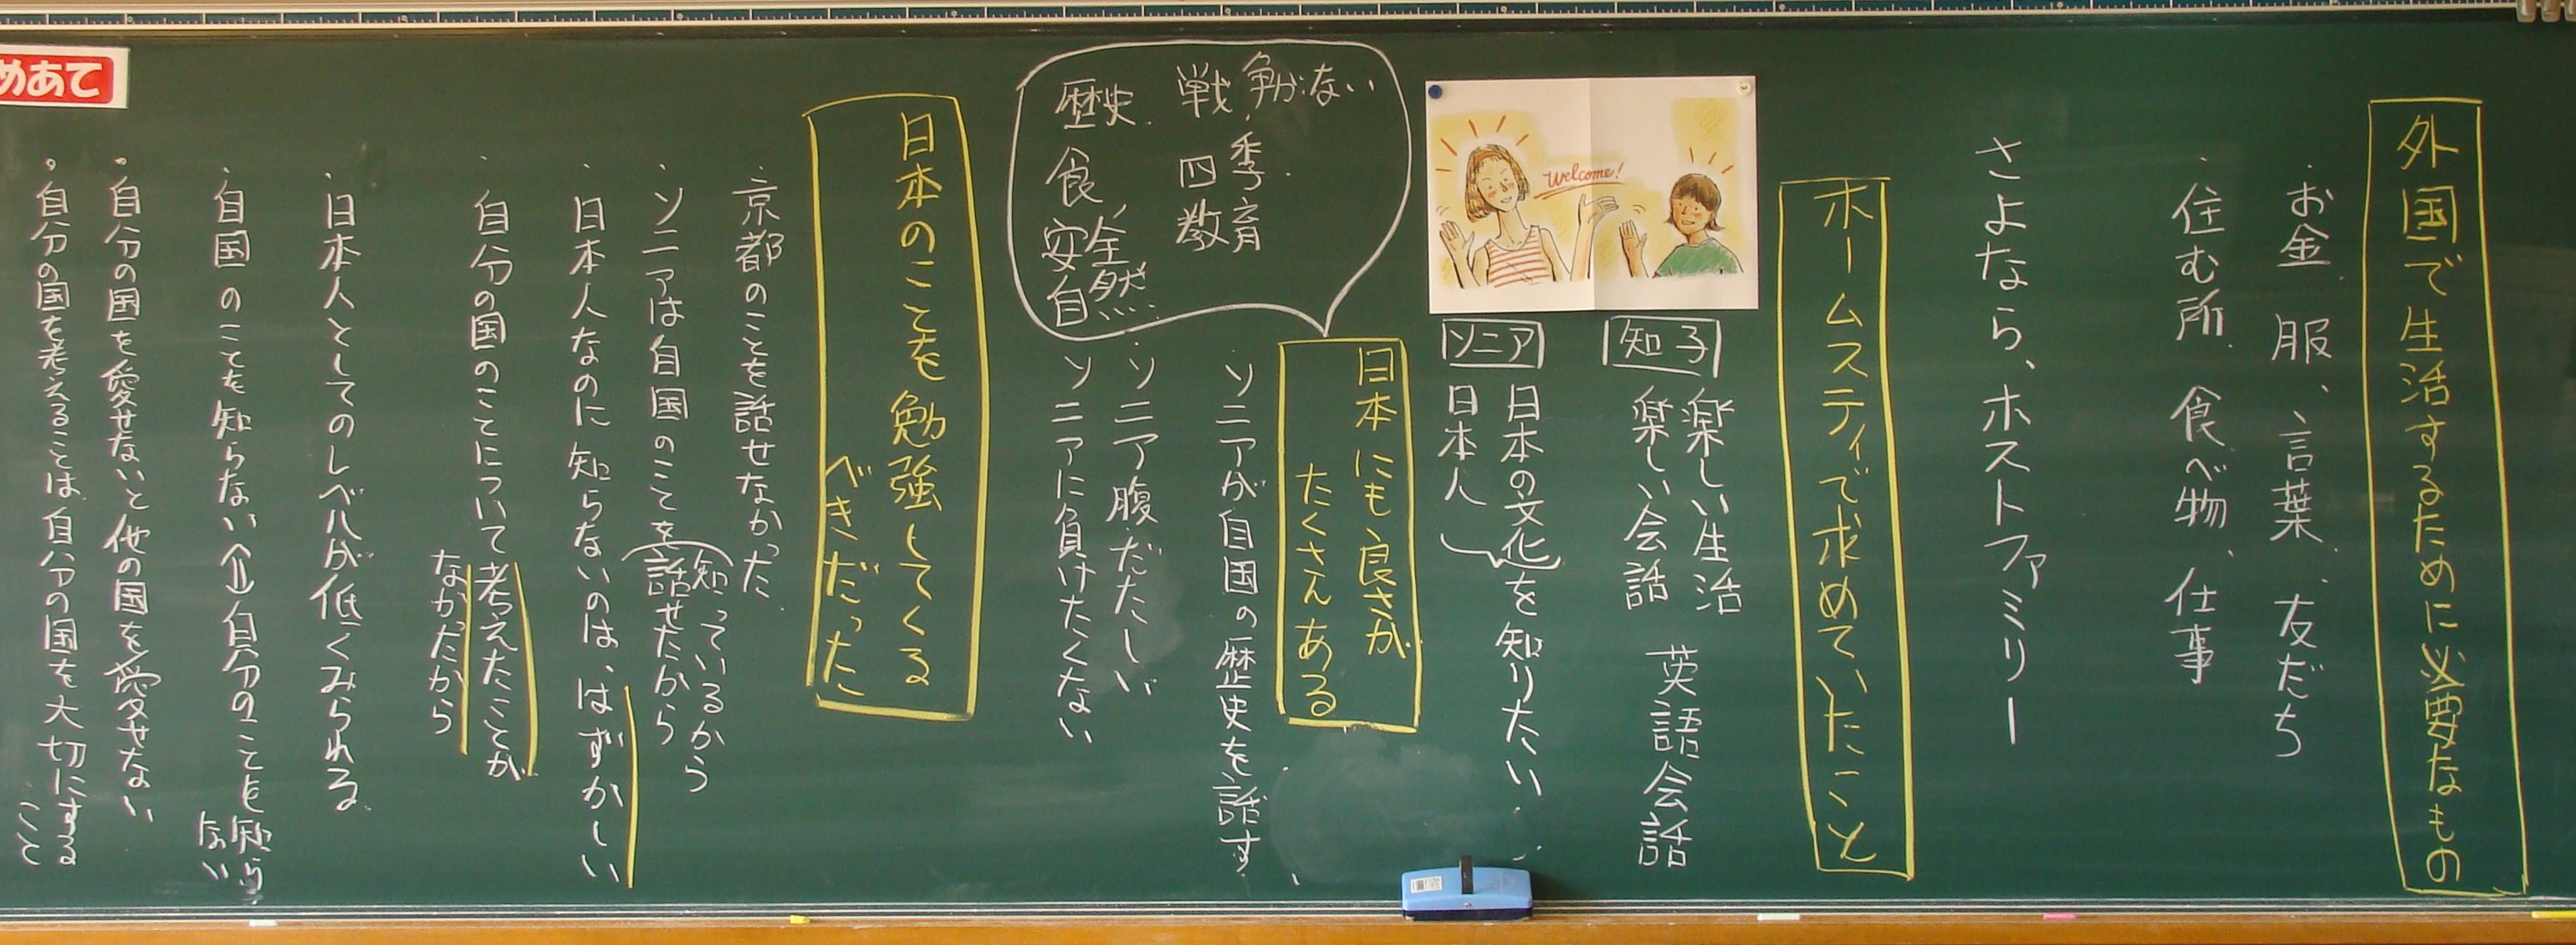 外国で生活するために必要なもの
・お金、服、言葉、友だち
・住む所、食べ物、仕事
さよなら、ホストファミリー
ホームスティで求めていたこと
Welcome!
知子
楽しい生活
楽しい会話
英語会話
ソニア
日本の文化を知りたい
日本人
日本にも良さが
たくさんある
戦争がない
四季
教育
歴史
食
安全
自然
・ソニアが自国の歴史を話す
・ソニア腹だたしい
・ソニアに負けたくない
日本のことを勉強してくる
べきだった
・京都のことを話せなかった
知っているから
・ソニアは自国のことを話せたから
・日本人なのに知らないのは、はずかしい
・自分の国のことについて考えたことが
なかったから
・日本人としてのレベルが低くみられる
・自国のことを知らない⇔自分のことも知ら
ない
・自分の国を愛せないと他の国を愛せない
・自分の国を考えることは自分の国を大切にする
こと
めあて